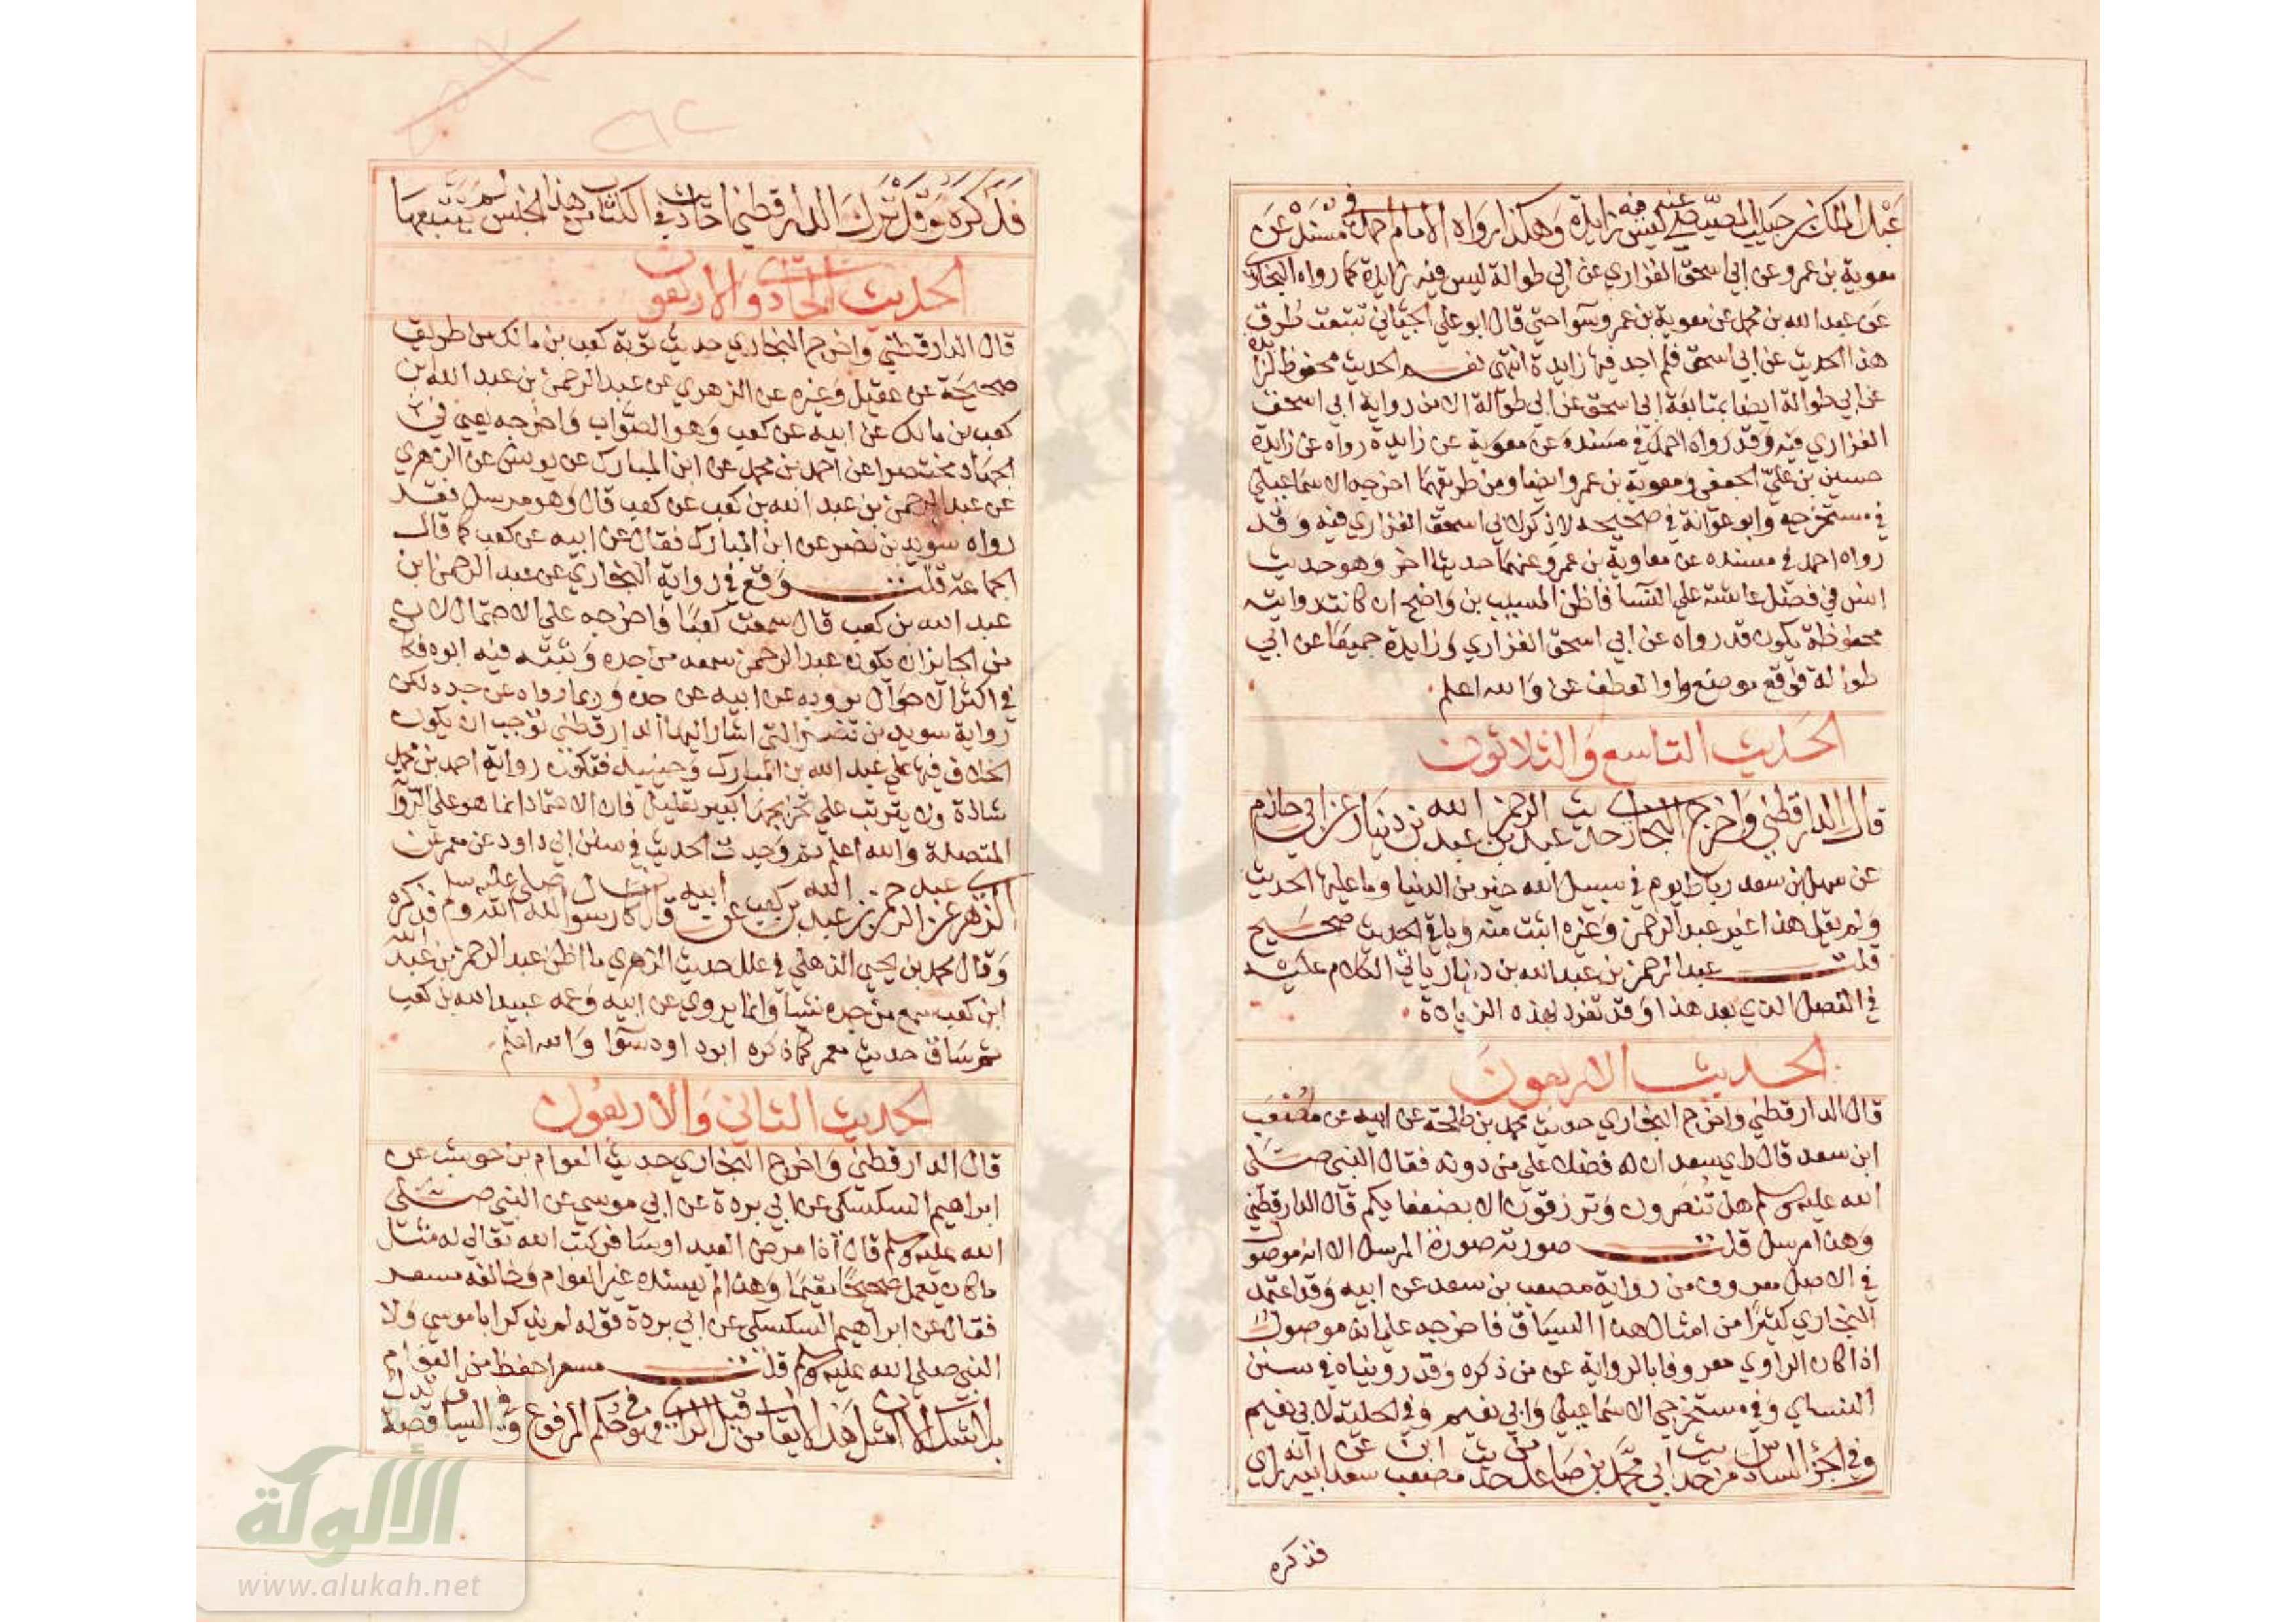 عبد الملك بن حبيب المصيصي عنه ليس فيه زايدة وهكذا رواه الامام احمد في مسنده عن
معوية بن عمرو عن ابي اسحق الفزاري عن ابي طوالة ليس فيه زايدة كما رواه البخاري
عن عبد الله بن محمد عن معوية بن عمرو سوا حتى قال ابو علي الجياني تتبعت طرق
هذا الحديث عن ابي اسحق فلم اجد فيها زايدة انتهى نعم الحديث محفوظ لزايدة
عن ابي طوالة ايضا بمتابعة ابي اسحق عن ابي طوالة الا من رواية ابي اسحق
الفزاري فيه وقد رواه احمد في مسنده عن معوية عن زايدة رواه عن زايدة
حسين بن علي الجعفي ومعوية بن عمرو ايضا ومن طريقهما اخرجه الاسماعيلي
في مستخرجه وابو عوانة في صحيحه لا ذكر لابي اسحق الفزاري فيه وقد
رواه احمد في مسنده عن معاوية بن عمرو عنهما حديثا اخر وهو حديث
انس في فضل عائشة على النسا فاظن المسيب بن واضح ان كانت روايته
محفوظة يكون قد رواه عن ابي اسحق الفزاري وزايدة جميعا عن ابي
طوالة فوقع موضع واو العطف عن والله اعلم
الحديث التاسع والثلاثون
قال الدارقطني واخرج البخاري حديث عبد الرحمن بن عبد الله بن دينار عن ابي حازم
عن سهل بن سعد رباط يوم في سبيل الله خير من الدنيا وما عليها الحديث
ولم يقل هذا غير عبد الرحمن وغيره اثبت منه وباقي الحديث صحيح
قلت عبد الرحمن بن عبد الله بن دينار ياتي الكلام عليه
في الفصل الذي بعد هذا وقد تفرد بهذه الزيادة
الحديث الاربعون
قال الدارقطني واخرج البخاري حديث محمد بن طلحة عن ابيه عن مصعب
ابن سعد قال راي سعد ان له فضلا على من دونه فقال النبي صلى
الله عليه وسلم هل تنصرون وترزقون الا بضعفايكم قال الدارقطني
وهذا مرسل قلت صورته صورة المرسل الا انه موصول
في الاصل معروف من رواية مصعب بن سعد عن ابيه وقد اعتمد
البخاري كثيرا من امثال هذا السياق فاخرجه على انه موصول
اذا كان الراوي معروفا بالرواية عن من ذكره وقد رويناه في سنن
النساي وفي مستخرجي الاسماعيلي وابي نعيم وفي الحلية لابي نعيم
وفي الجزء السادس من حديث ابي محمد بن صاعد من حديث مصعب ابن سعد عن ابيه انه راي
فذكره
فذكره وقد ترك الدارقطني احاديث في الكتاب من هذا الجنس لم يتتبعها
الحديث الحادي والاربعون
قال الدارقطني واخرج البخاري حديث توبة كعب بن مالك من طريق
صحيحة عن عقيل وغيره عن الزهري عن عبد الرحمن بن عبد الله بن
كعب بن مالك عن ابيه عن كعب وهو الصواب واخرجه يعني في
الجهاد مختصرا عن احمد بن محمد عن ابن المبارك عن يونس عن الزهري
عن عبد الرحمن بن عبد الله بن كعب عن كعب قال وهو مرسل فقد
رواه سويد بن نصر عن ابن المبارك فقال عن ابيه عن كعب كما قال
الجماعة قلت وقع في رواية البخاري عن عبد الرحمن ابن
عبد الله بن كعب قال سمعت كعبا فاخرجه على الاحتمال لان
من الجايزان يكون عبد الرحمن سمعه من جده وثبته فيه ابوه فكان
في اكثر الاحوال يرويه عن ابيه عن جده وربما رواه عن جده لكن
رواية سويد بن نصر التي اشار اليها الدارقطني توجب ان يكون
الخلاف فيها على عبد الله بن المبارك وحينيذ فتكون رواية احمد بن محمد
شاذة ولا يترتب على تخريجها كبير تعليل فان الاعتماد انما هو على الرواية
المتصلة والله اعلم ثم وجدت الحديث في سنن ابي داود عن معمر عن
الزهري عن عبد الرحمن بن عبد الله بن كعب عن ابيه قال كان رسول الله صلى الله عليه وسلم فذكره
وقال محمد بن يحيى الذهلي في علل حديث الزهري ما اظن عبد الرحمن بن عبد الله
ابن كعب سمع من جده شيا وانما يروي عن ابيه وعمه عبيد الله بن كعب
ثم ساق حديث معمر كما ذكره ابو داود سوا والله اعلم
الحديث الثاني والاربعون
قال الدارقطني واخرج البخاري حديث العوام بن حوشب عن
ابراهيم السكسكي عن ابي بردة عن ابي موسى عن النبي صلى
الله عليه وسلم قال اذا مرض العبد او سافر كتب الله تعالى له مثل
ما كان يعمل صحيحا مقيما وهذا لم يسنده غير العوام وخالفه مسعر
فقال عن ابراهيم السكسكي عن ابي بردة قوله لم يذكر ابا موسى ولا
النبي صلى الله عليه وسلم قلت مسعر احفظ من العوام
بلا شك الا ان مثل هذا لا يقال من قبل الراي فهو في حكم المرفوع وفي السياق قصة تدل
الألوكة
www.alukah.net